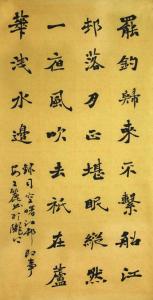 罷釣歸來不繫船江
邨落月正堪眠縱然
一夜風吹去祇在蘆
華浅水邊
録司空曙江邨即事
於